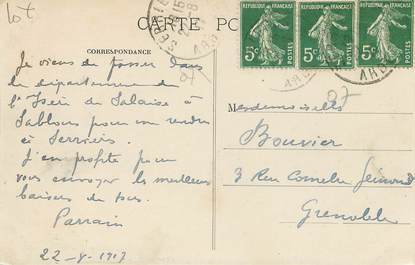 lot
CARTE PO
CORRESPONDANCE
RÉPUBLIQUE FRANÇAISE
5c POSTES
RÉPUBLIQUE FRANÇAISE
5c POSTES
RÉPUBLIQUE FRANÇAISE
5c POSTES
Je viens de passer dans
le département de
l'Isère de Salaise à
Sablons pour me rendre
à Serrières
J'en profite pour
vous envoyer les meilleurs
baisers de tous.
Parrain
22-8-1917
07
Mesdemoiselles
Bouvier
3 Rue Cornélie
Grenoble